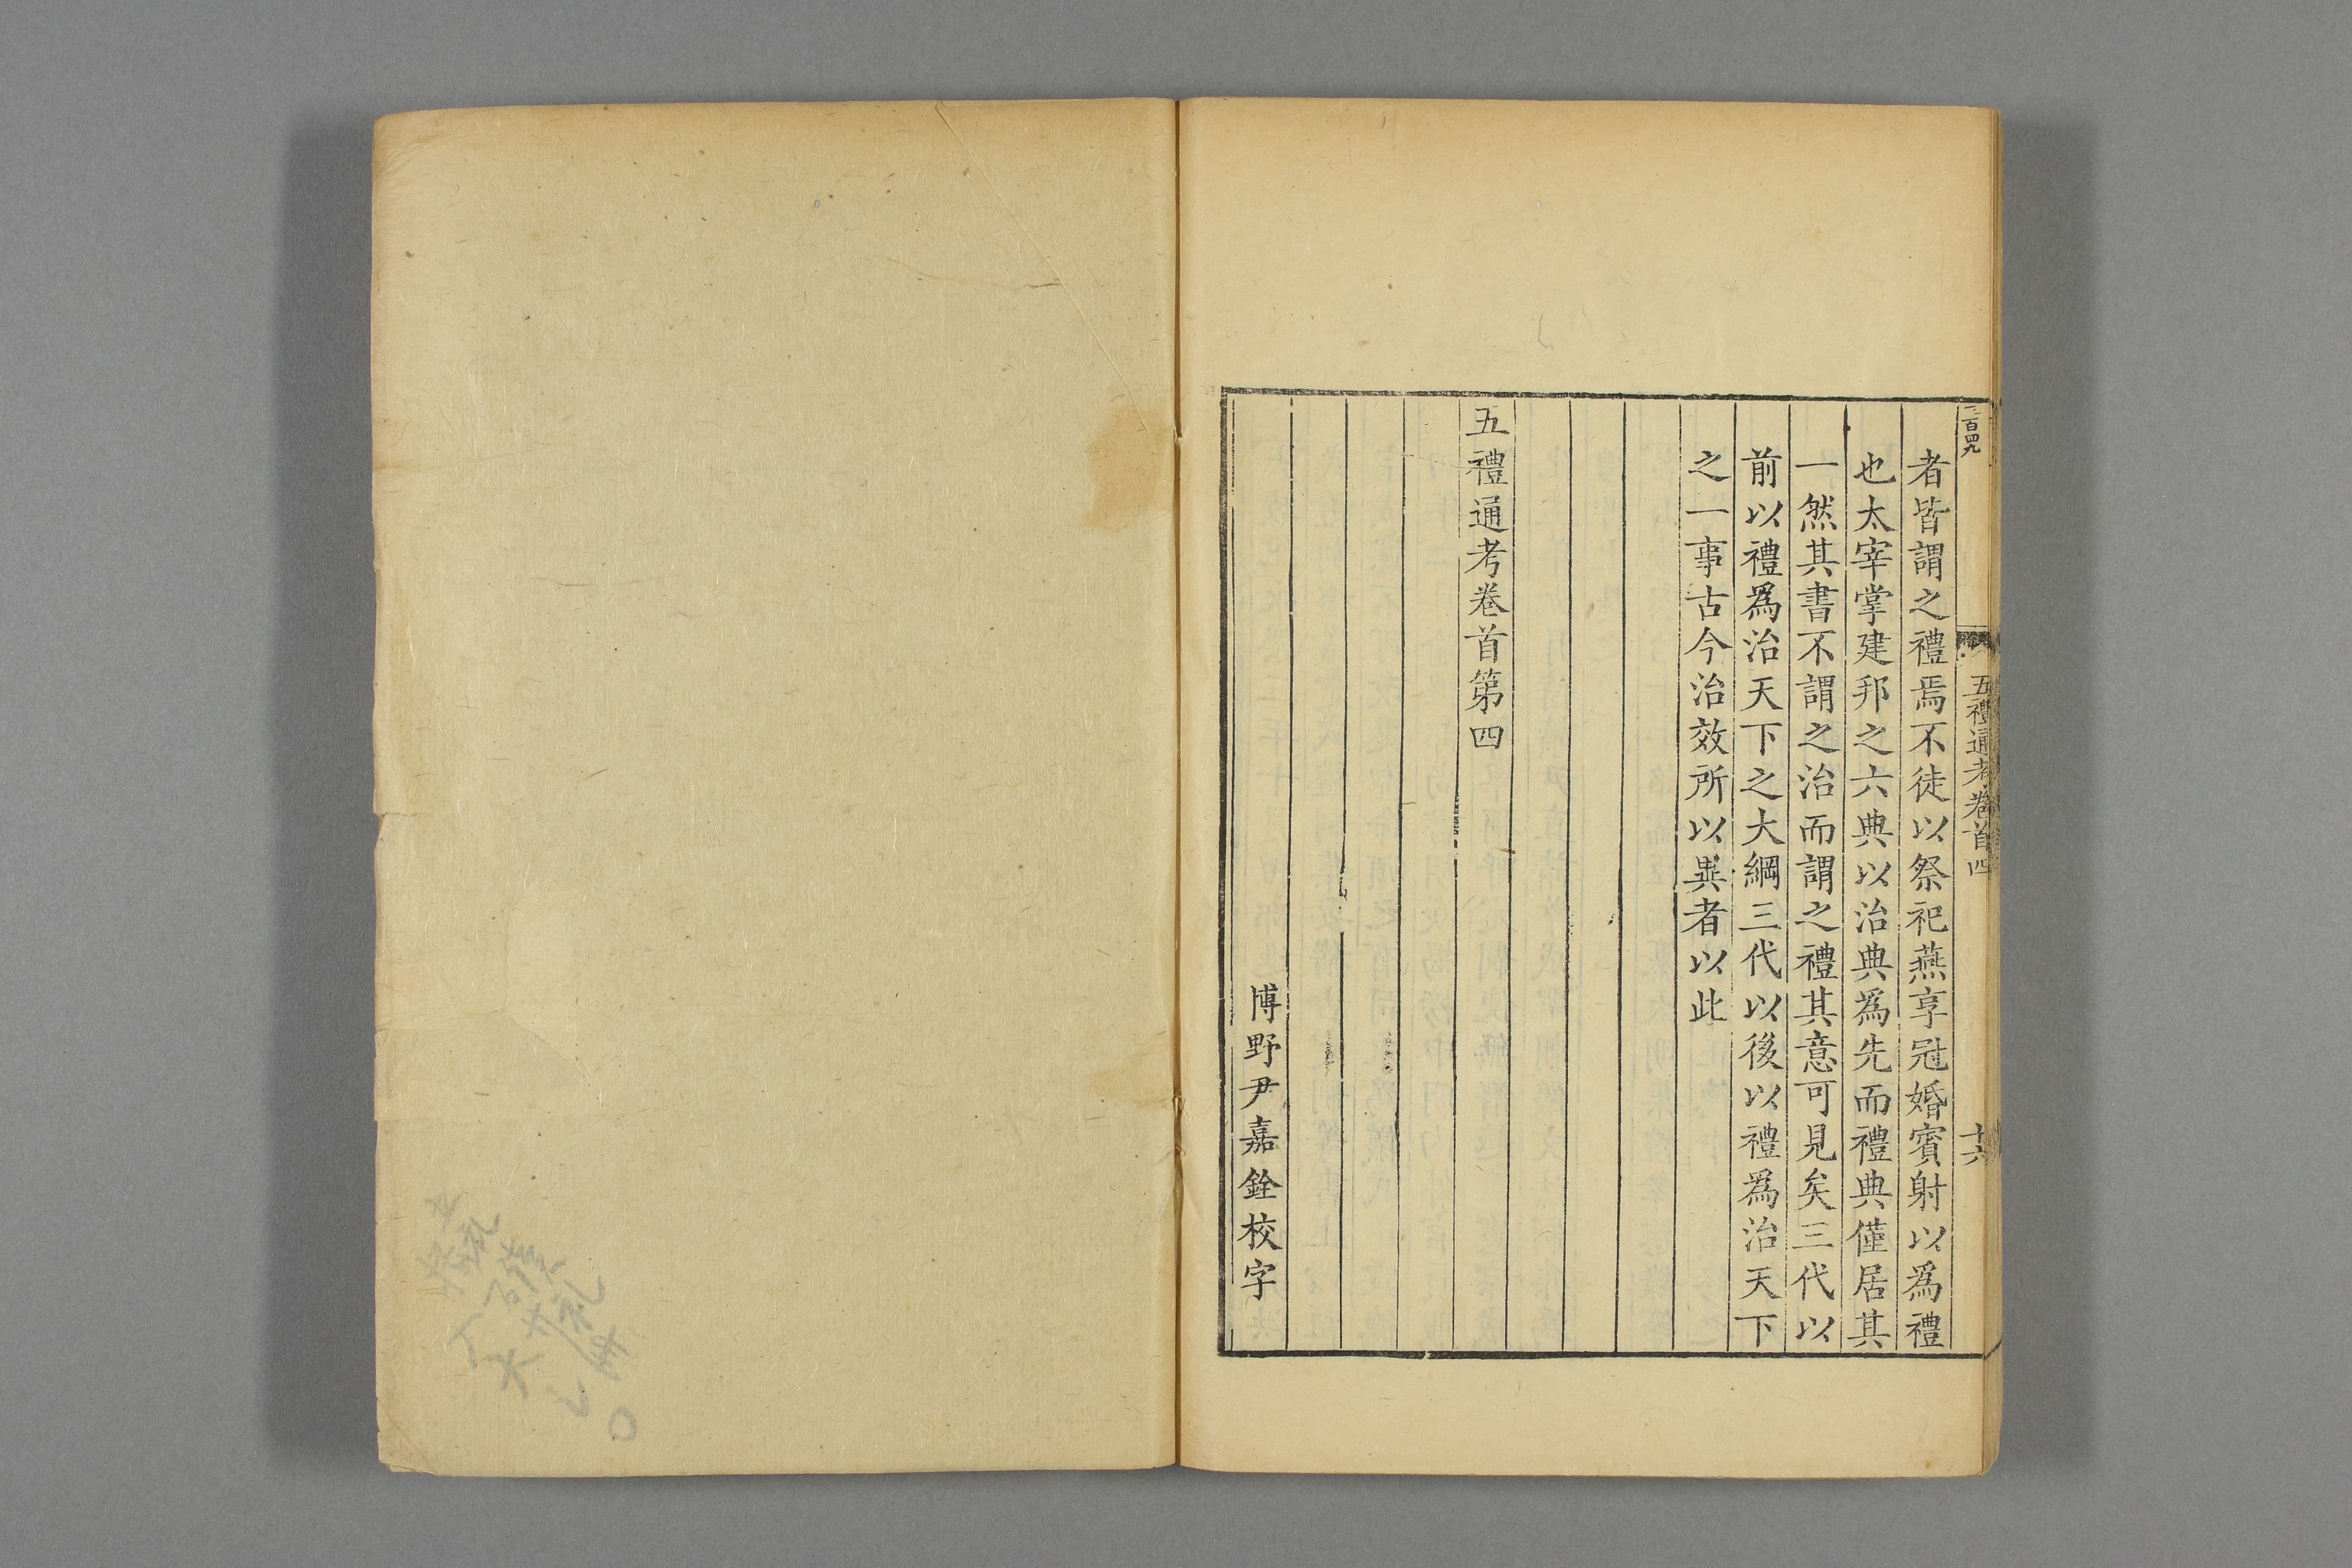 三百四九
五禮通考卷首四
十六
者皆謂之禮焉不徒以祭祀燕享冠婚賓射以爲禮
也太宰掌建邦之六典以治典爲先而禮典僅居其
一然其書不謂之治而謂之禮其意可見矣三代以
前以禮爲治天下之大綱三代以後以禮爲治天下
之一事古今治效所以異者以此
五禮通考卷首第四
博野尹嘉銓校字